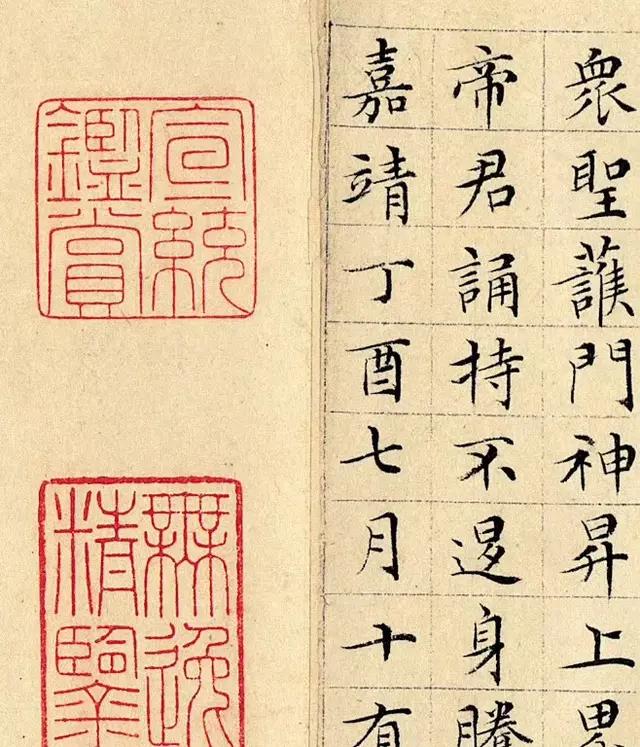 衆聖護門神昇上界
帝君誦持不退身騰
嘉靖丁酉七月十有
宣統
鑑賞
無逸
精鑒